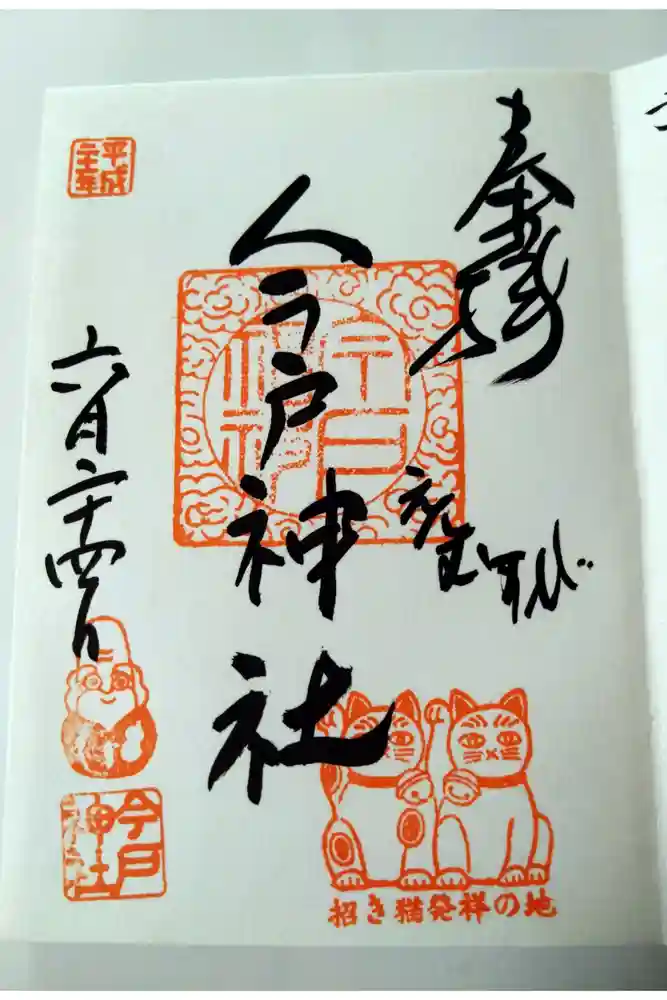 奉拝
えんむすび
今戸神社
今戸
神社
平成
六月二十四日
今戸
神社
招き猫発祥の地